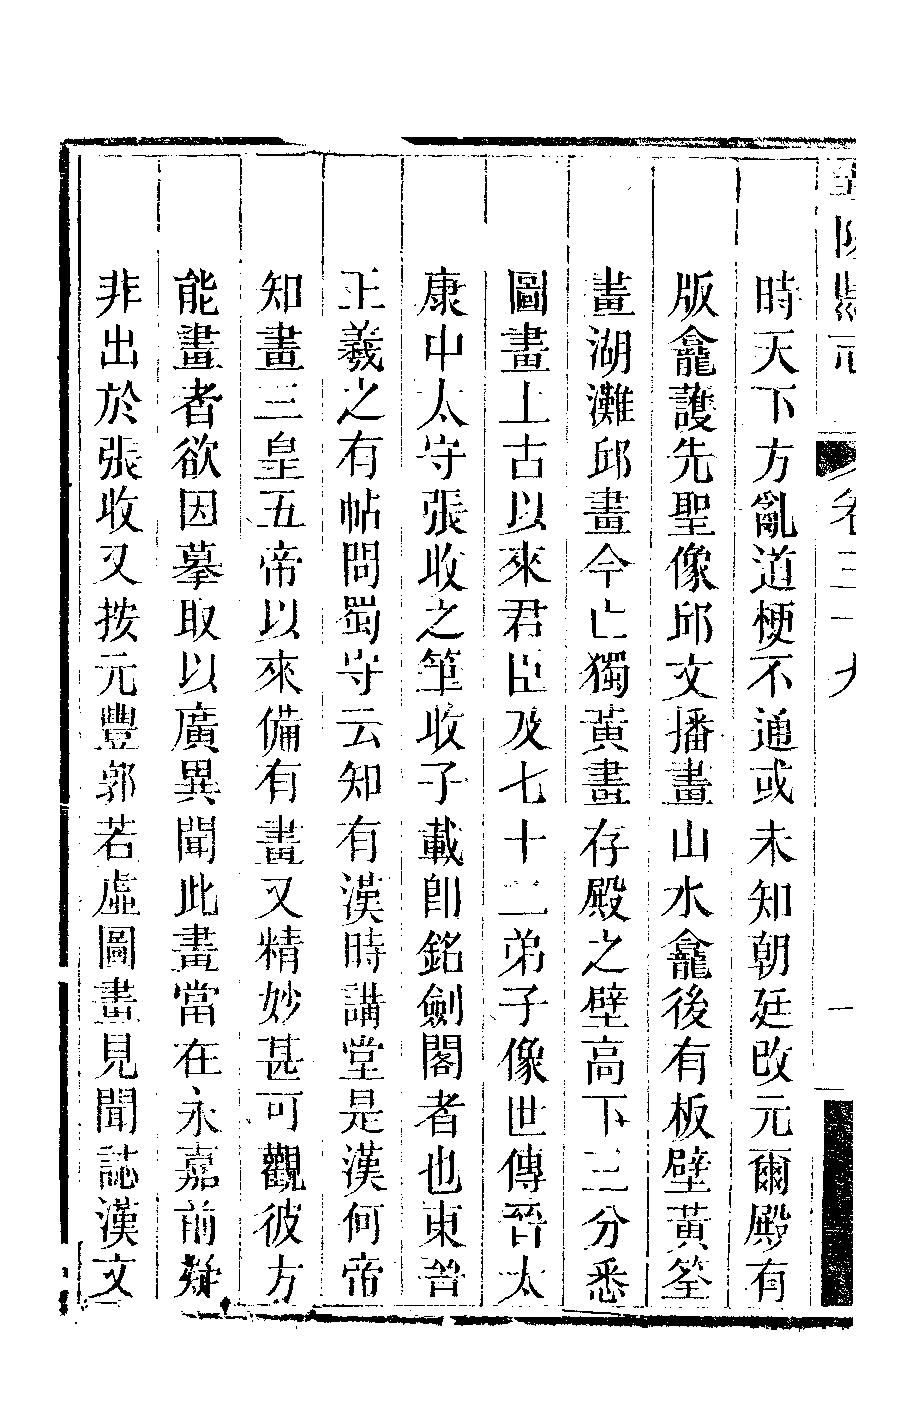 縣志
卷三十
時天下方亂道梗不通或未知朝廷改元爾殿有
版龕護先聖像邱文播畫山水龕後有板壁黃筌
畫湖灘邱畫今亡獨黃畫存殿之壁高下三分悉
圖畫上古以來君臣及七十二弟子像世傳晉太
康中太守張收之筆收子載卽銘劍閣者也東晉
王羲之有帖問蜀守云知有漢時講堂是漢何帝
知畫三皇五帝以來備有畫又精妙甚可觀彼方
能畫者欲因摹取以廣異聞此畫當在永嘉前疑
非出於張收又按元豐郭若虛圖畫見聞誌漢文